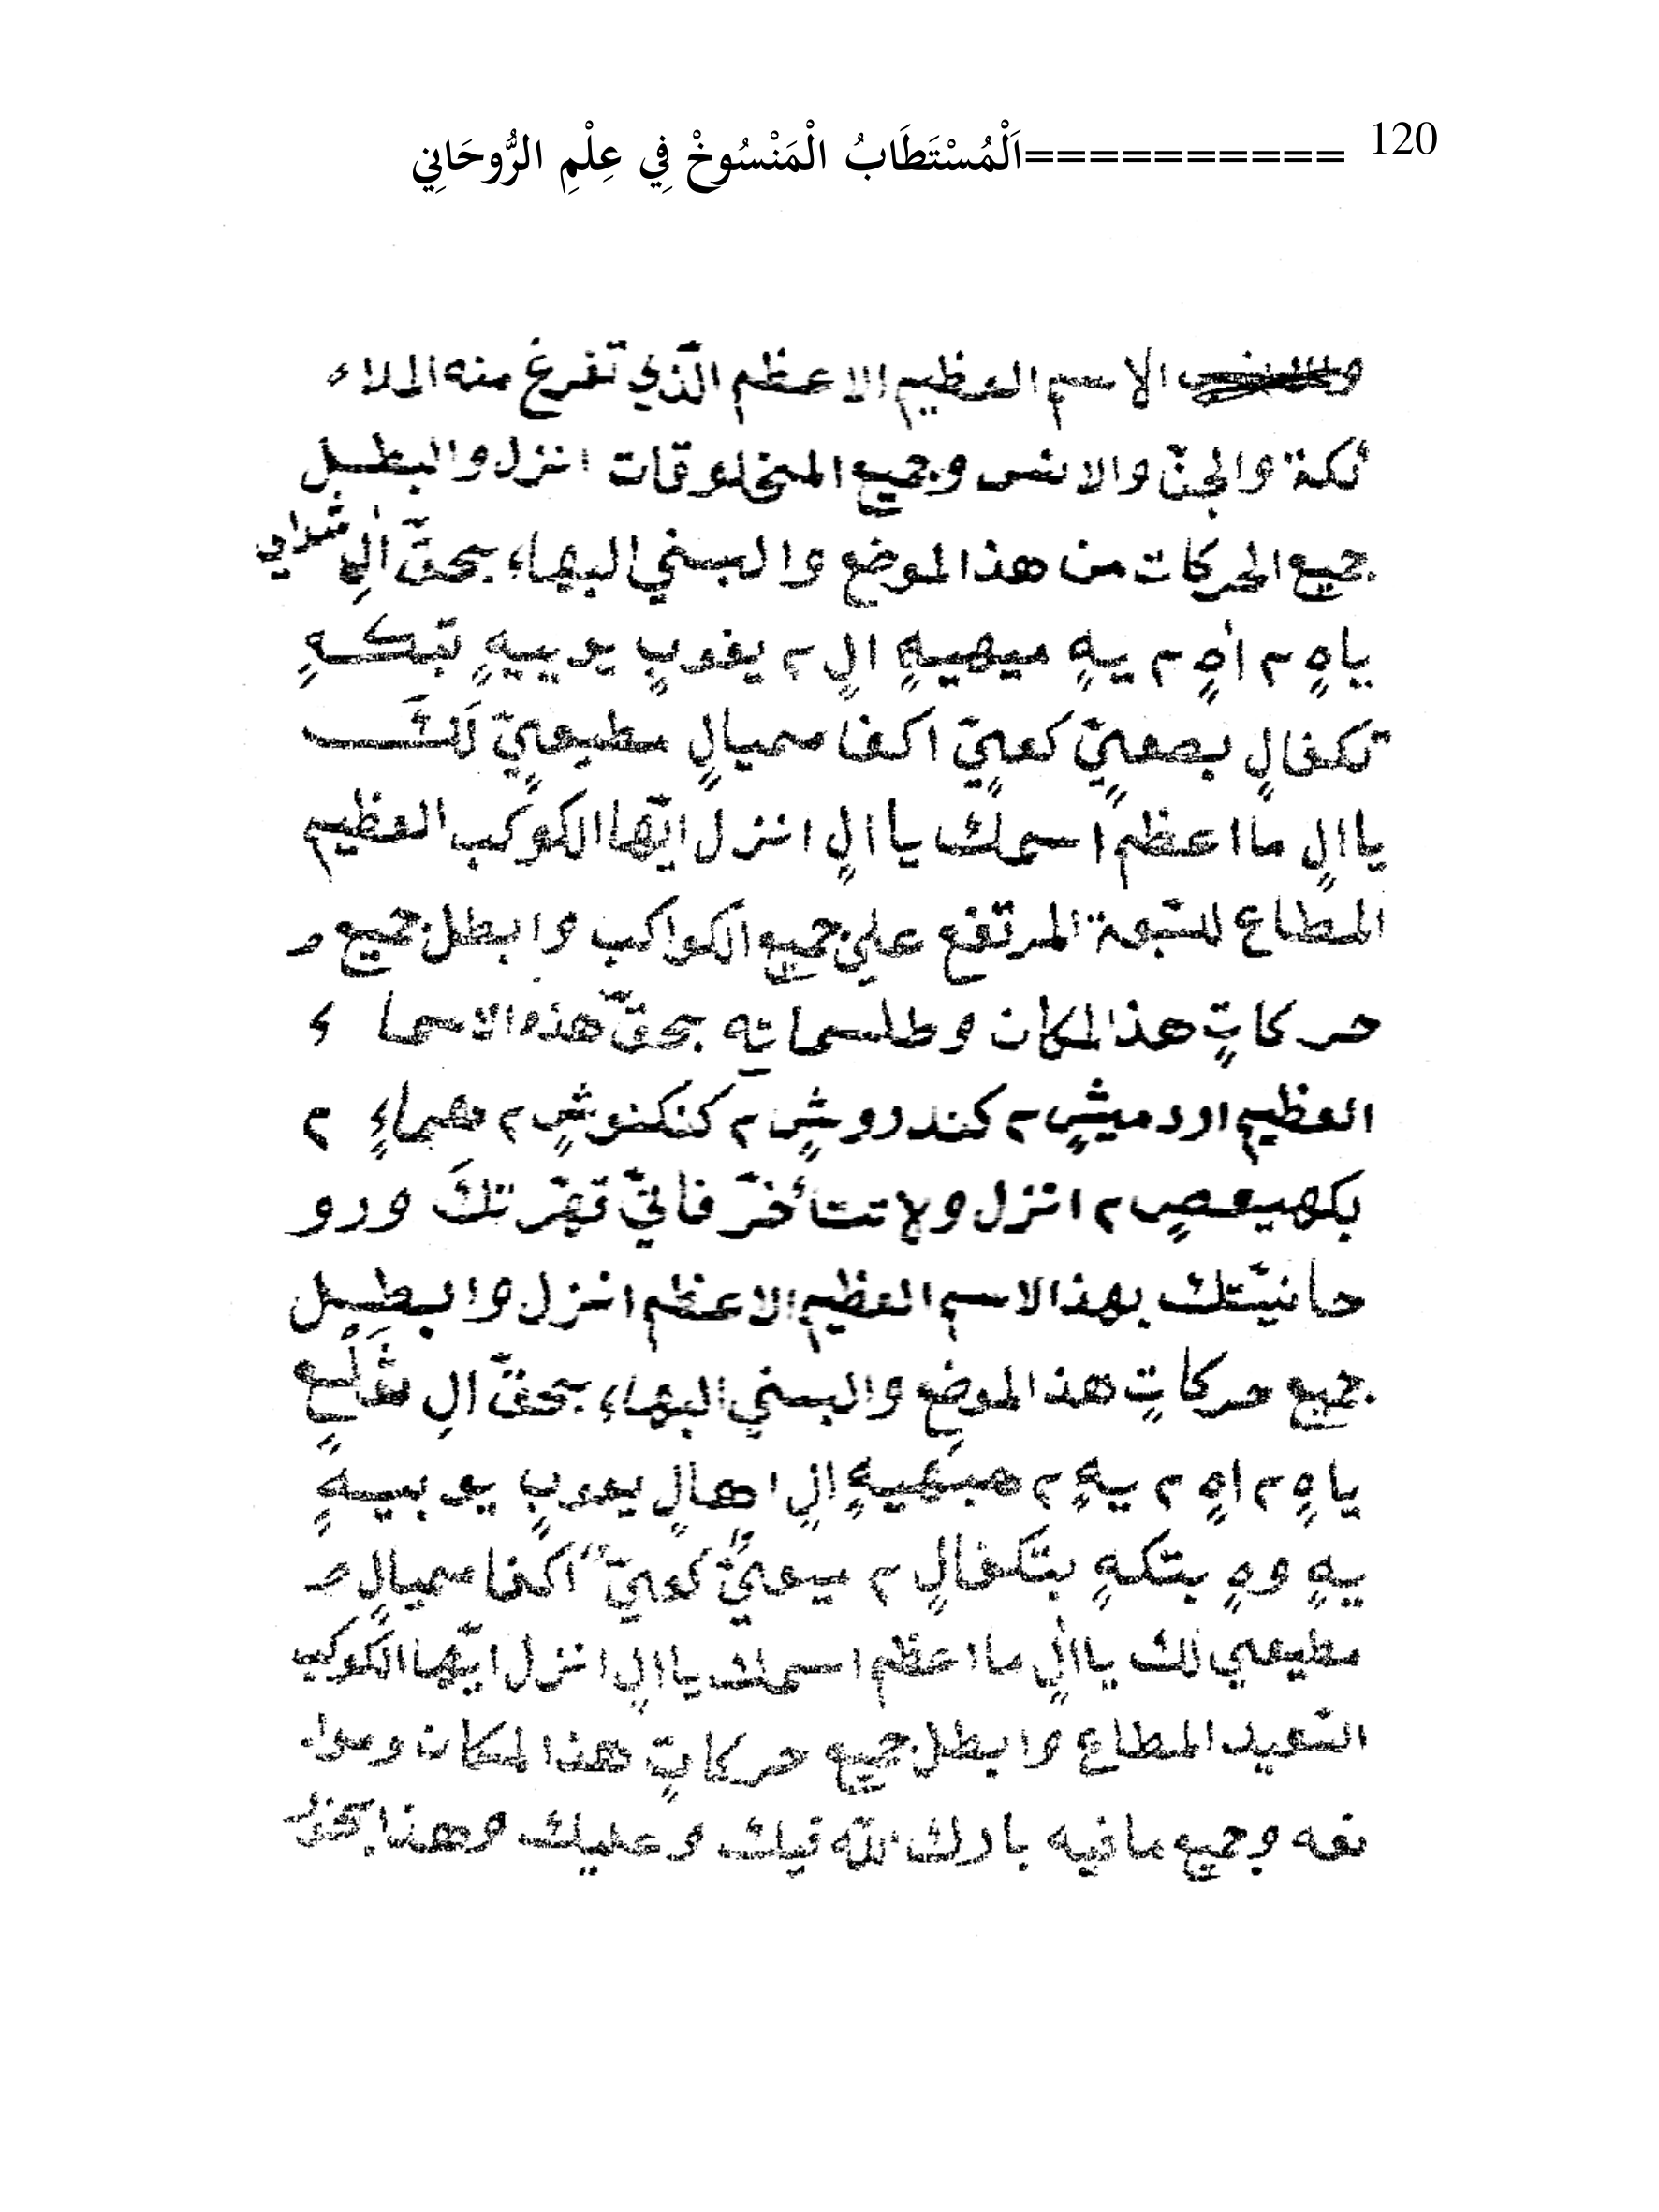 120 ==========اَلْمُسْتَطَابُ الْمَنْسُوخْ فِي عِلْمِ الرُّوحَانِي
الاسم العظيم الاعظم الّذي تفرغ منه الملاء
ئكة والجنّ والانس وجميع المخلوقات انزل والبطيل
جميع الحركات من هذا الموضع والبسني البهاء بحقّ
ياهٍ ٢ اهٍ ٢ يهٍ ميهيهٍ الٍ ٢ يغوبٍ يوييهٍ تبكهٍ
تكفالٍ بصعيّ كعيّ اكفا سميالٍ مطيعيّ لَكَ
ياالٍ ما اعظم اسمك ياالٍ انزل ايّها الكوكب العظيم
المطاع المرتفع علي جميع الكواكب وابطل جميع
حركاتٍ هذا المكان وطلسماته بحقّ هذه الاسما ء
العظيم اودميشٍ ٢ كندروشٍ ٢ كنكنوشٍ ٢ هماءٍ ٢
بكهيعصٍ ٢ انزل ولا تتأخرّ فانيّ قهّرتكَ ورو
حانيّتك بهذا الاسم العظيم الاعظم انزل والبطيل
جميع حركاتٍ هذا الموضع والبسني البهاء بحقّ الِ
ياهٍ ٢ اهٍ ٢ يهٍ ٢ الٍ اهالٍ يعوبٍ يوبيهٍ
يهٍ وهٍ بتكهٍ بتكفالٍ ٢ كعيّ اكفا سميالٍ
مطيعي لك ياالٍ ما اعظم اسمك ياالٍ انزل ايّها الكوكب
السّعيد المطاع وابطل جميع حركاتٍ هذا المكان وموا
نعه وجميع ما فيه بارك اللّه فيك وعليك وهذا